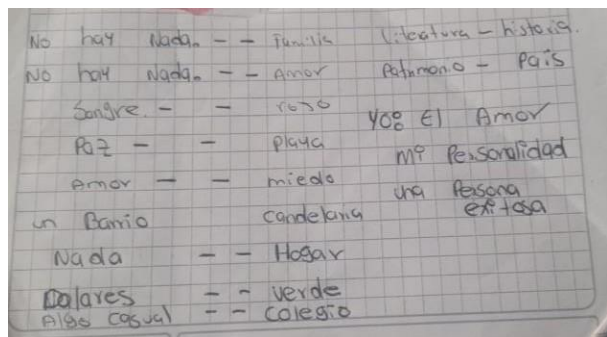 No hay Nada. - - Familia
No hay Nada. - - Amor
Sangre. - - rojo
Paz - - Playa
Amor - - miedo
un Barrio candelaria
Nada - - Hogar
Dolares - - verde
Algo casual - - colegio
Literatura - historia.
Patrimonio - Pais
Yo: El Amor
Mi Personalidad
una Persona
exitosa